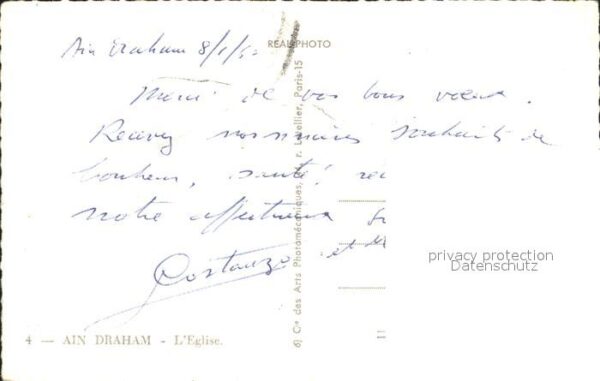 REAL PHOTO
Ain Draham 8/1/5
Merci de vos bons vœux.
Recevez nos sincères souhaits de
bonheur, santé!
notre affectueux
Costanzo et M
privacy protection
Datenschutz
6) Cie des Arts Photomécaniques, r. Letellier, Paris-15
4 — AIN DRAHAM - L'Eglise.